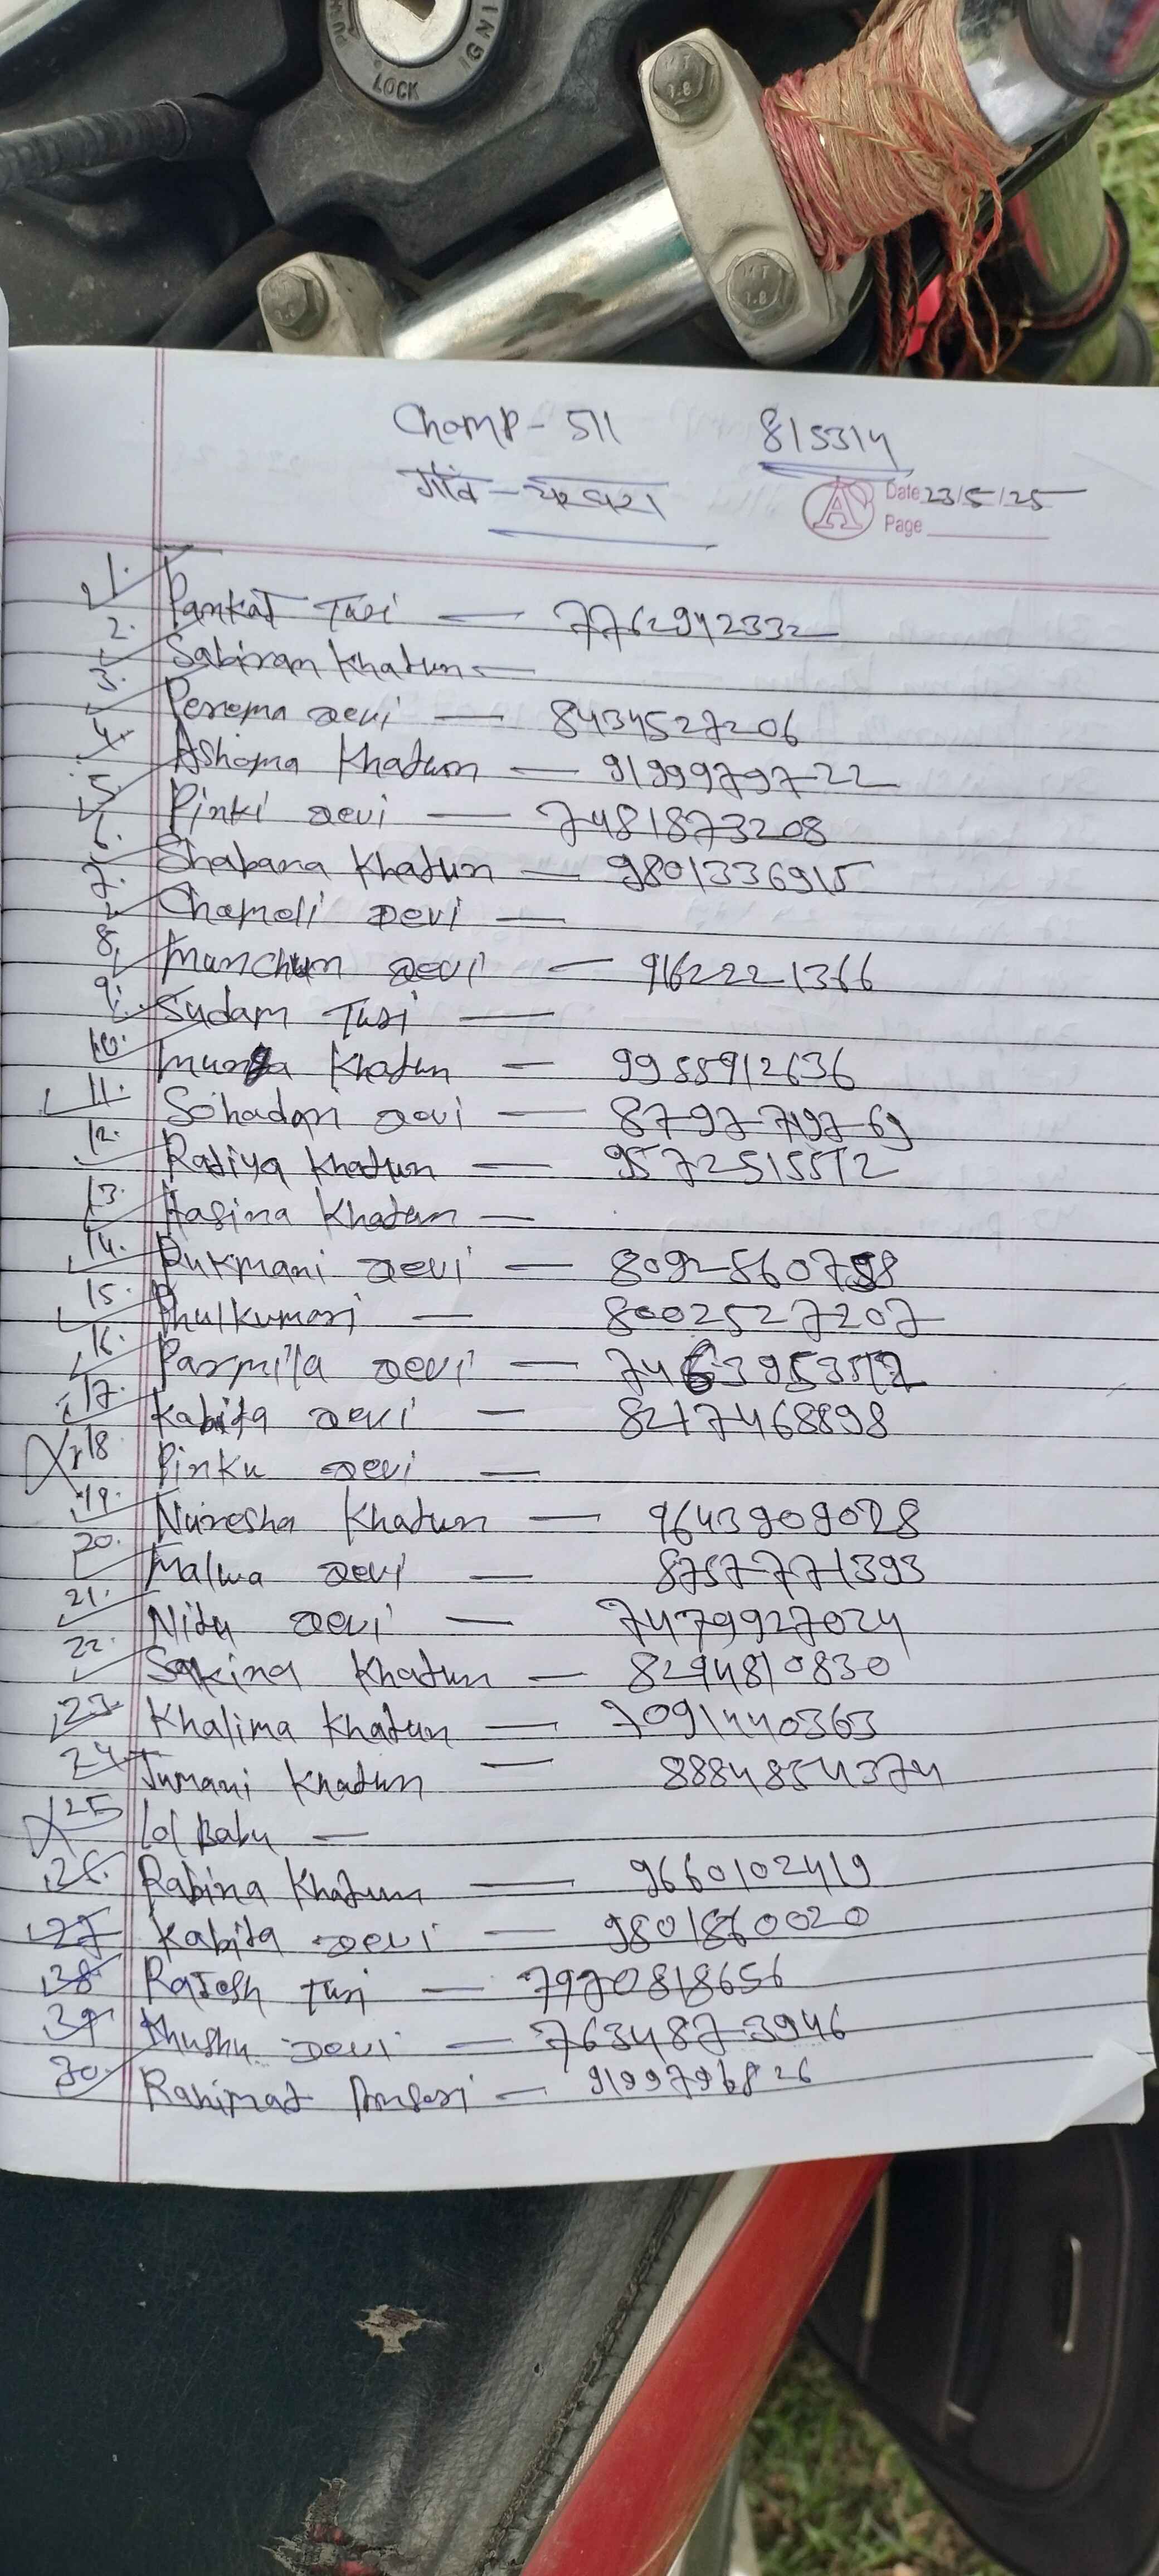 LOCK
MT
1.8
MT
1.8
Champ - 511 815314
गांव -
Date 23/5/25
Page
1. Pankaj Turi — 7762942332
2. Sabiran Khatun —
3. Perema Devi — 8434527206
4. Ashoma Khatun — 9199979722
5. Pinki Devi — 7481873208
6. Shabana Khatun — 9801336915
7. Chameli Devi —
8. Manchun Devi — 9162221366
9. Sudam Turi —
10. Khatun — 9955912636
11. Sohadari Devi —
12. Ratiya Khatun — 9572515572
13. Hasina Khatun —
14. Rukmani Devi —
15. Phulkumari — 8002527207
16. Parmila Devi —
17. Kabita Devi — 8217468898
18 Pinku Devi —
19. Nuresha Khatun —
20. Malwa Devi — 8757771393
21. Nitu Devi — 7479927024
22. Sakina Khatun — 8294810830
23. Khalima Khatun — 7091440363
24 Jumani Khatun — 8884854374
25 Lal Babu —
26. Rabina Khatun — 9660102419
27 Kabita Devi — 9801860020
38 Rajesh Turi — 7970818656
39 Khushu Devi — 7634873946
30 Rahimat Ansari —